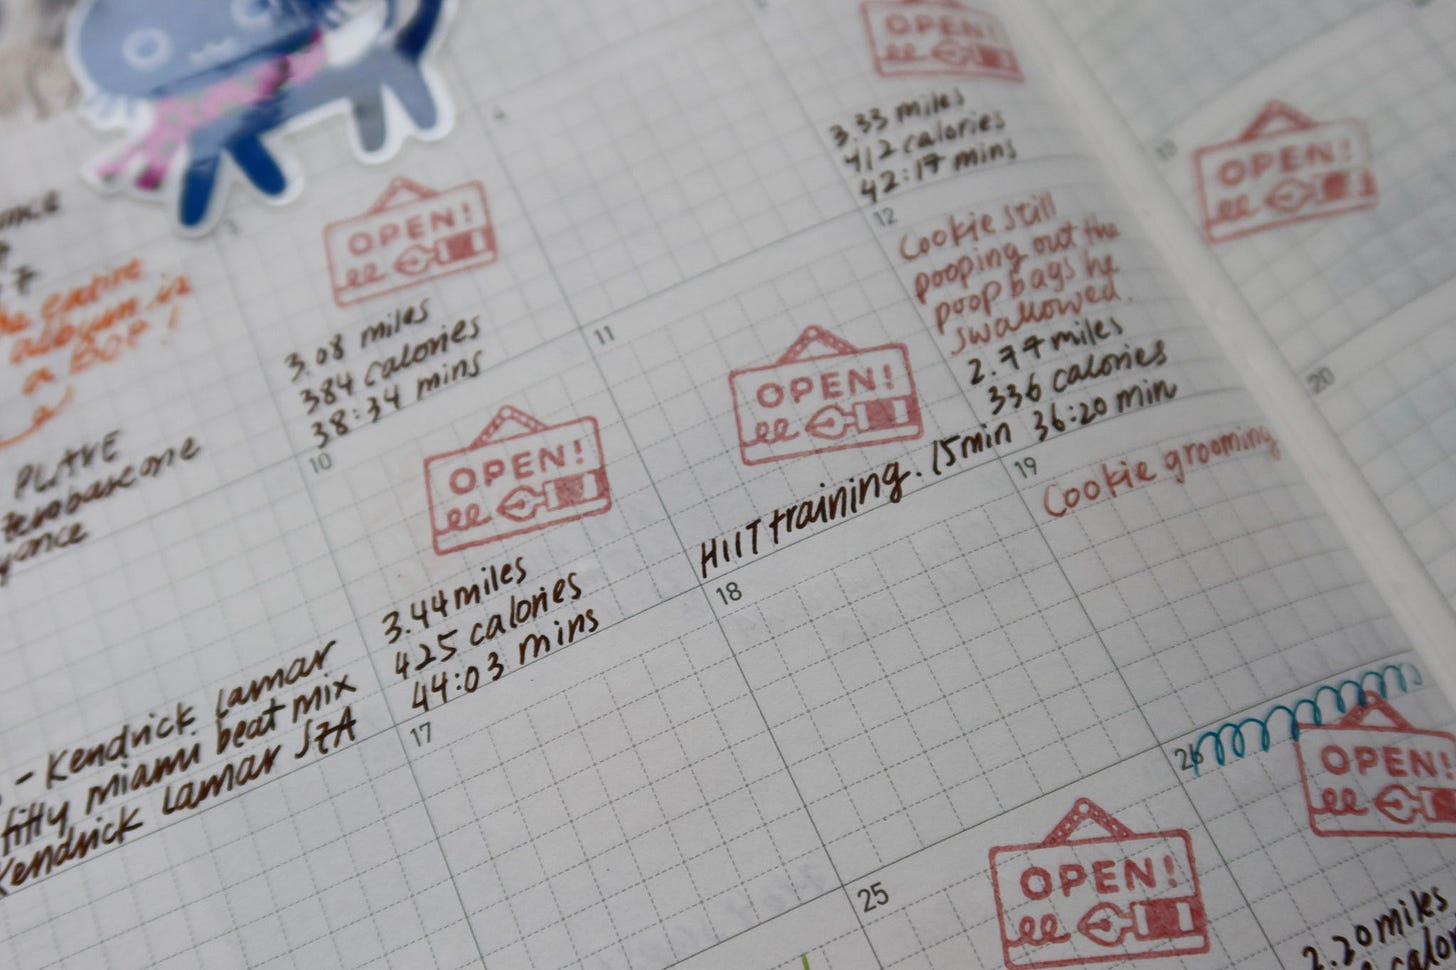 the entire
album is
a BOP!
3
OPEN!
3.08 miles
384 calories
38:34 mins
4
OPEN!
3.33 miles
412 calories
42:17 mins
10
OPEN!
3.44 miles
425 calories
44:03 mins
- Kendrick Lamar
fifty miami beat mix
Kendrick Lamar SZA
11
OPEN!
HIIT training. 15min
12
Cookie still
pooping out the
poop bags he
swallowed.
2.77 miles
336 calories
36:20 min
13
OPEN!
17
18
19
Cookie grooming
20
25
OPEN!
26
OPEN!
2.20 miles